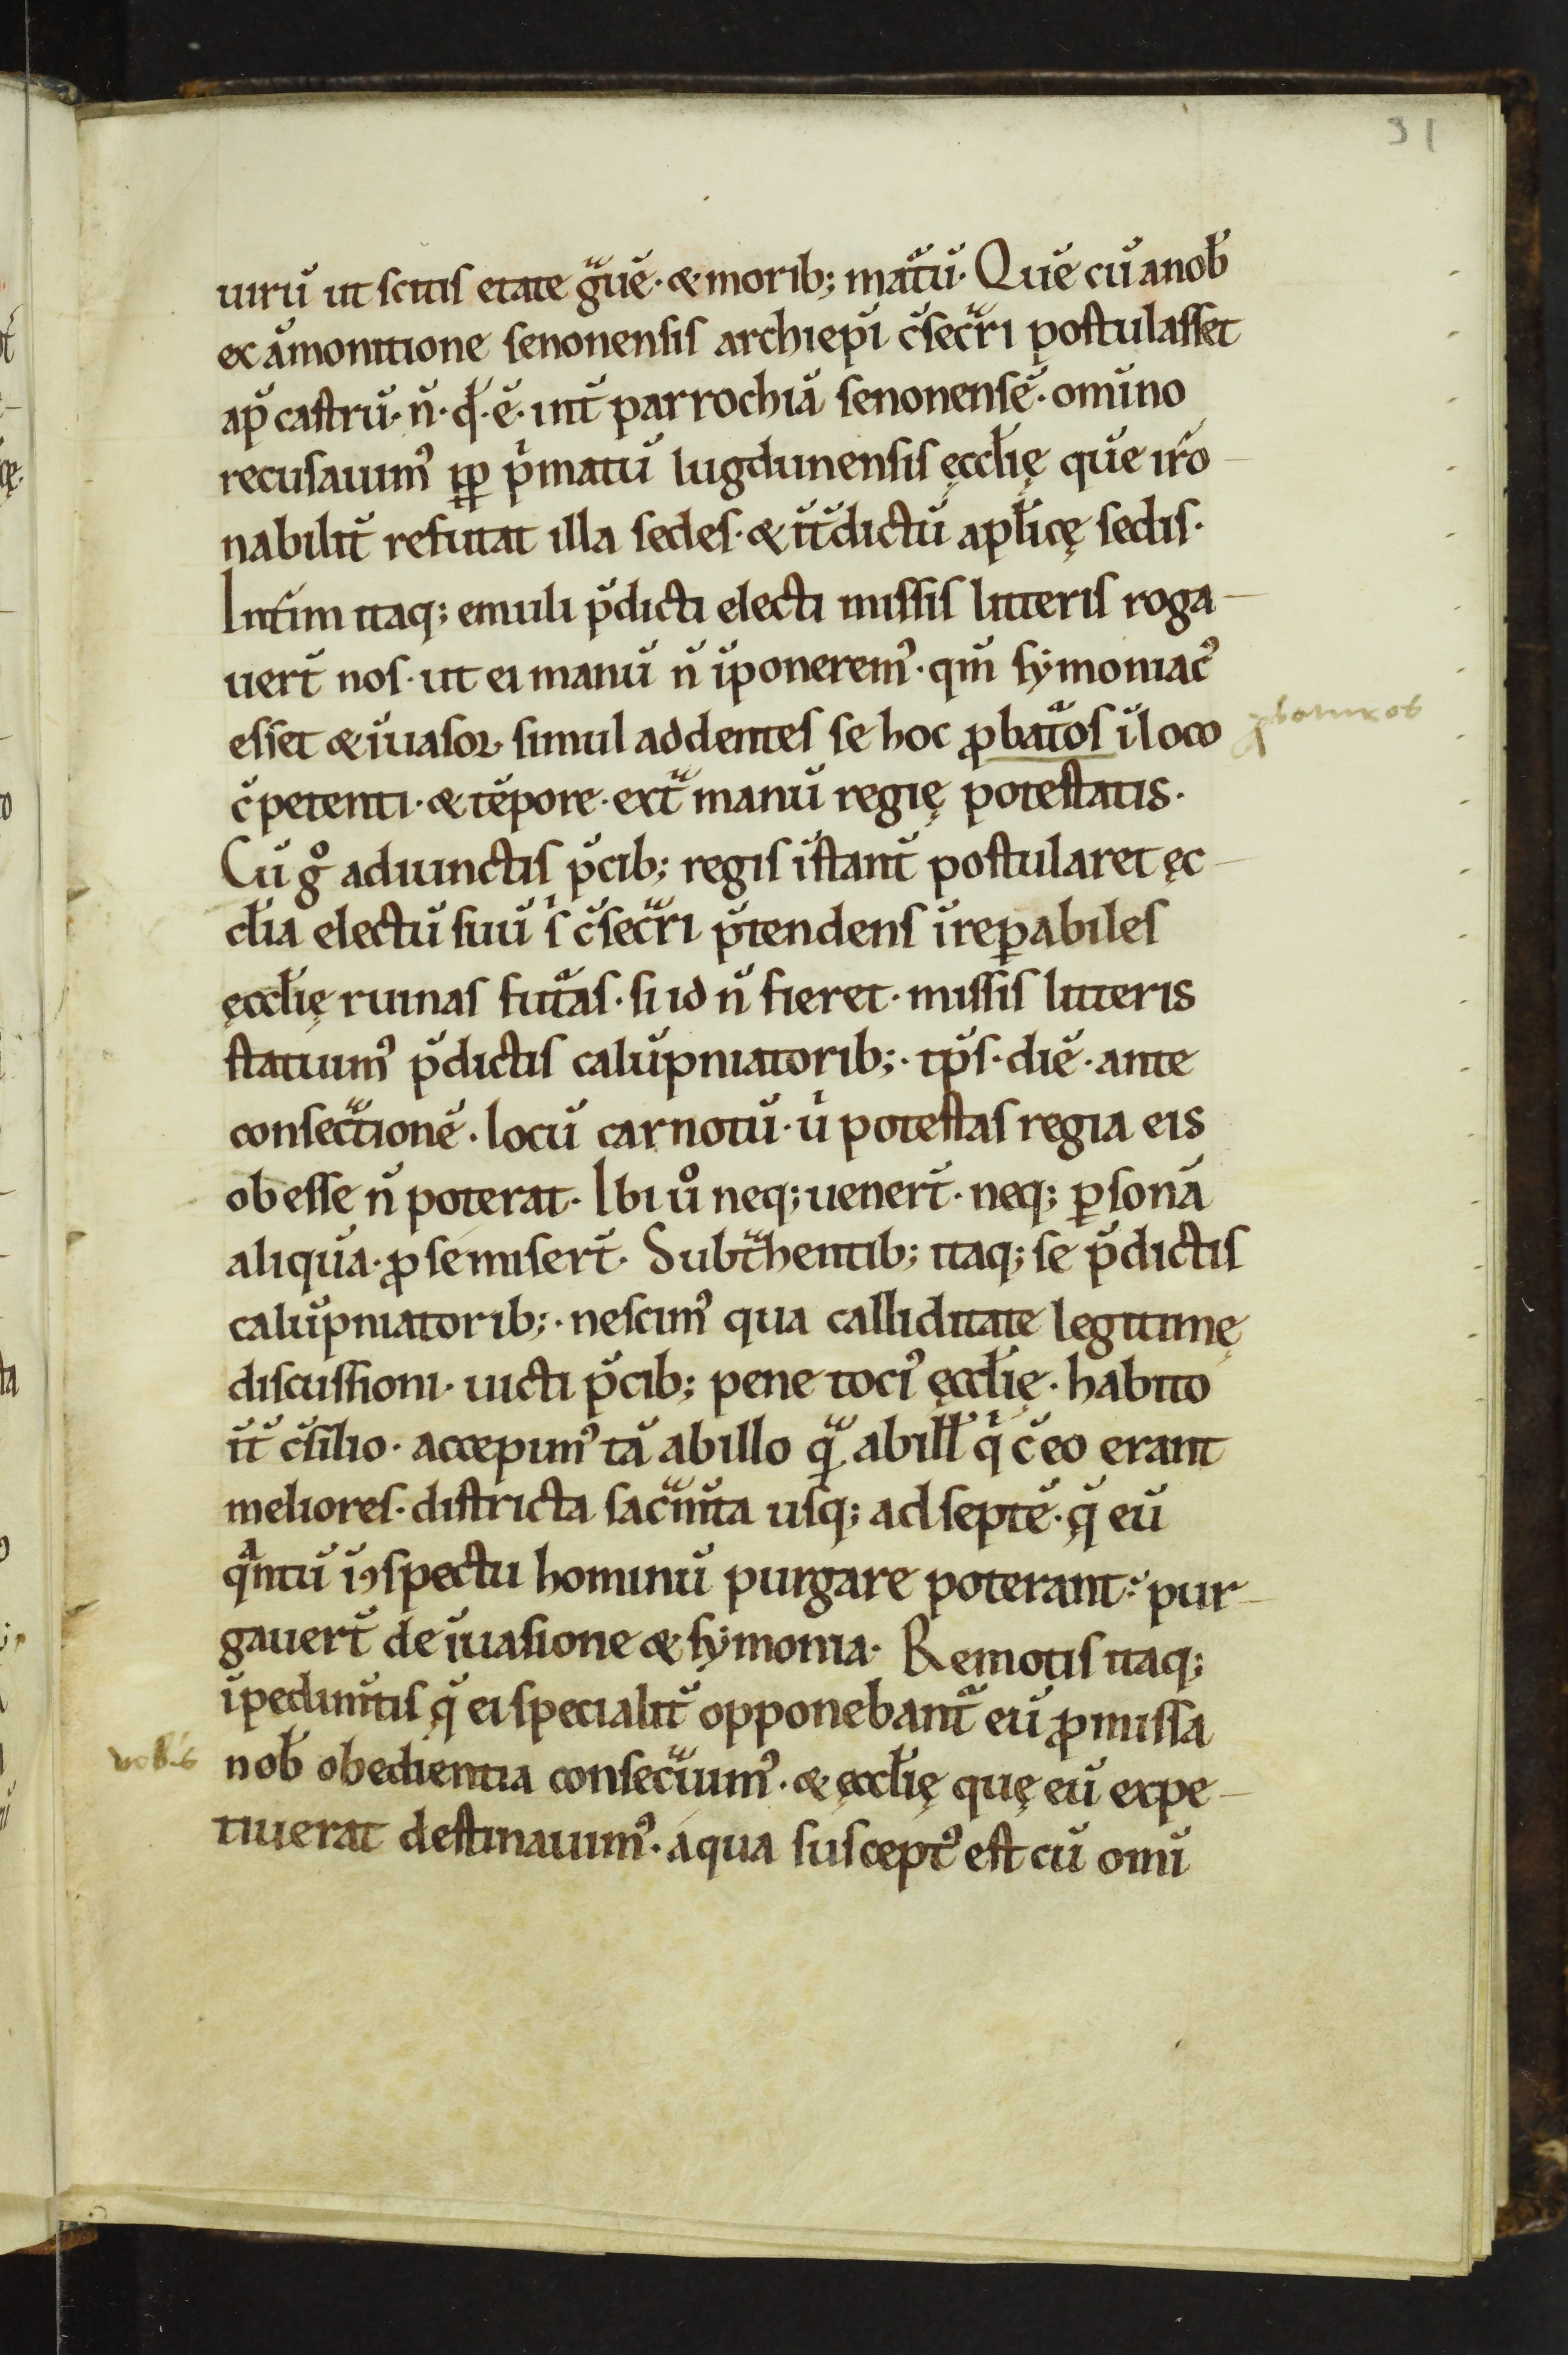 31
uirũ ut scitis etate gͣuẽ · & morib; matͣũ · Quẽ cũ a nob̃
ex ãmonitione senonensis archiep̃i c̃secͣri postulasset
ap̃ castrũ · ñ · qđ · ẽ · int̃ parrochiã senonensẽ · omĩno
recusauimꝰ ꝓp pͥmatũ lugdunensis ęccl̃ię quẽ irͦo
nabilit̃ refutat illa sedes · & ĩt̃dictũ apl̃icę sedis ·
Int̃im itaq; emuli p̃dicti electi missis litteris roga
uer̃t nos · ut ei manũ ñ ĩponeremꝰ · qm̃ sẏmoniacꝰ
esset & ĩuasor simul addentes se hoc ꝓbatͣos ĩ loco
ꝓbaturos
c̃petenti · & tẽpore · extͣ manũ regię potestatis ·
Cũ gͦ adiunctis p̃cib; regis ĩstant̃ postularet ęc
cl̃ia electũ suũ sͥ c̃secͣri p̃tendens ĩreꝑabiles
ęccl̃ię ruinas futͣas · si id ñ fieret · missis litteris
statuimꝰ p̃dictis calũpniatorib; · tp̃s · diẽ · ante
consecͣtionẽ · locũ carnotũ · uͥ potestas regia eis
obesse ñ poterat · Ibi uͦ neq; uener̃t · neq; ꝑsonã
aliquã · ꝓ se miser̃t · Subtͣhentib; itaq; se p̃dictis
calũpniatorib; · nescimꝰ qua calliditate legitimę
discussioni · uicti p̃cib; pene tociꝰ ęccl̃ię · habito
ĩt̃ c̃silio · accepimꝰ tã ab illo qͣ̃ ab ill̃ qͥ c̃ eo erant
meliores · districta sacͣm̃ta usq; ad septẽ · q̃ eũ
qͣntũ ĩ ꝯspectu hominũ purgare poterant · pur
gauer̃t de ĩuasione & sẏmonia · Remotis itaq;
ĩpedim̃tis q̃ ei specialit̃ opponebantͣ eũ ꝓmissa
uobis
nob̃ obedientia consecͣuimꝰ · & ęccl̃ię quę eũ expe
tiuerat destinauimꝰ · a qua susceptꝰ est cũ omĩ